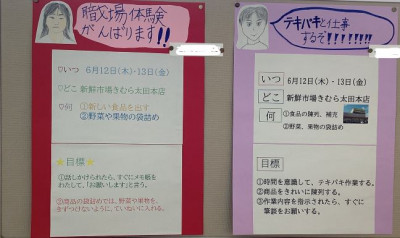 職場体験
がんばります!!
♡いつ 6月12日(木)・13日(金)
♡どこ 新鮮市場きむら太田本店
♡何 ①新しい食品を出す
②野菜や果物の袋詰め
★目標★
①話しかけられたら、すぐにメモ帳を
わたして、「お願いします」と言う。
②商品の袋詰めでは、野菜や果物を、
きずつけないように、ていねいに入れる。
テキパキと仕事
するぞ!!!!!!!!
いつ 6月12日(木)・13日(金)
どこ 新鮮市場きむら太田本店
何 ①食品の陳列、補充
②野菜、果物の袋詰め
目標
①時間を意識して、テキパキ作業する。
②商品をきれいに陳列する。
③作業内容を指示されたら、すぐに
筆談をお願いする。